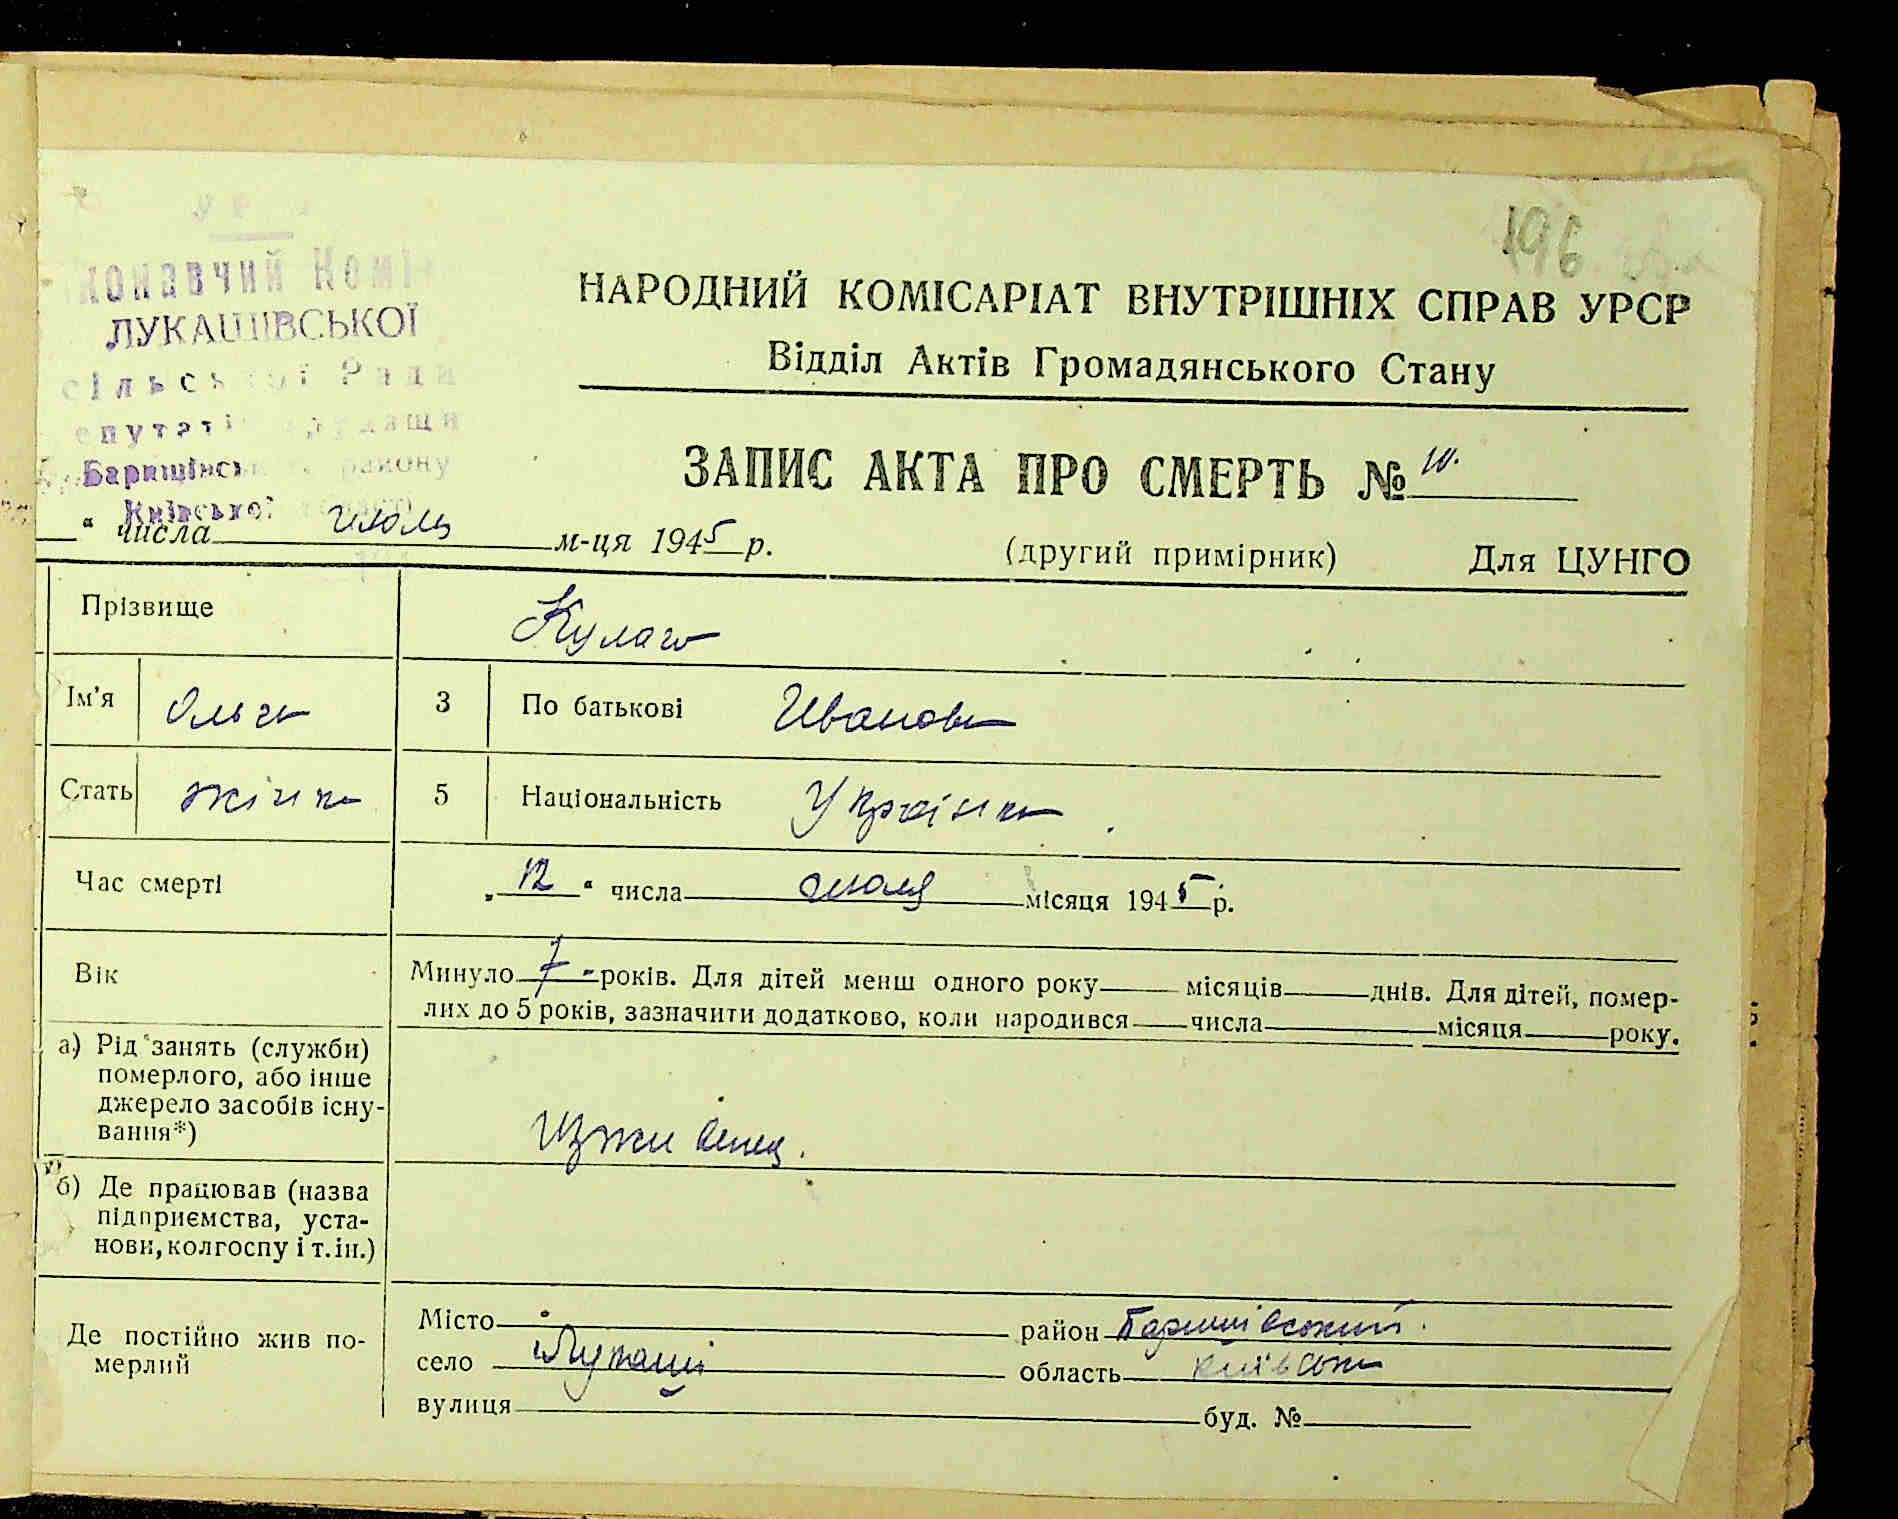 196
НАРОДНИЙ КОМІСАРІАТ ВНУТРІШНІХ СПРАВ УРСР
Відділ Актів Громадянського Стану
конавчий Комі
ЛУКАШІВСЬКОЇ
сільської Ради
епутатів трудящи
Баришівсь району
Київської
ЗАПИС АКТА ПРО СМЕРТЬ № 10.
“ числа июль м-ця 1945 р.
(другий примірник) Для ЦУНГО
Прізвище Кулаго
Ім'я Ольга 3 По батькові Иванов
Стать жінка 5 Національність Українка
Час смерті „12“ числа июля місяця 1945 р.
Вік Минуло 7 років. Для дітей менш одного року місяців днів. Для дітей, помер-
лих до 5 років, зазначити додатково, коли народився числа місяця року.
а) Рід занять (служби)
померлого, або інше
джерело засобів існу-
вання*)
Изживенец.
б) Де працював (назва
підприємства, уста-
нови, колгоспу і т.ін.)
Де постійно жив по-
мерлий
Місто район Баришівський.
село Лукаші область київська
вулиця буд. №